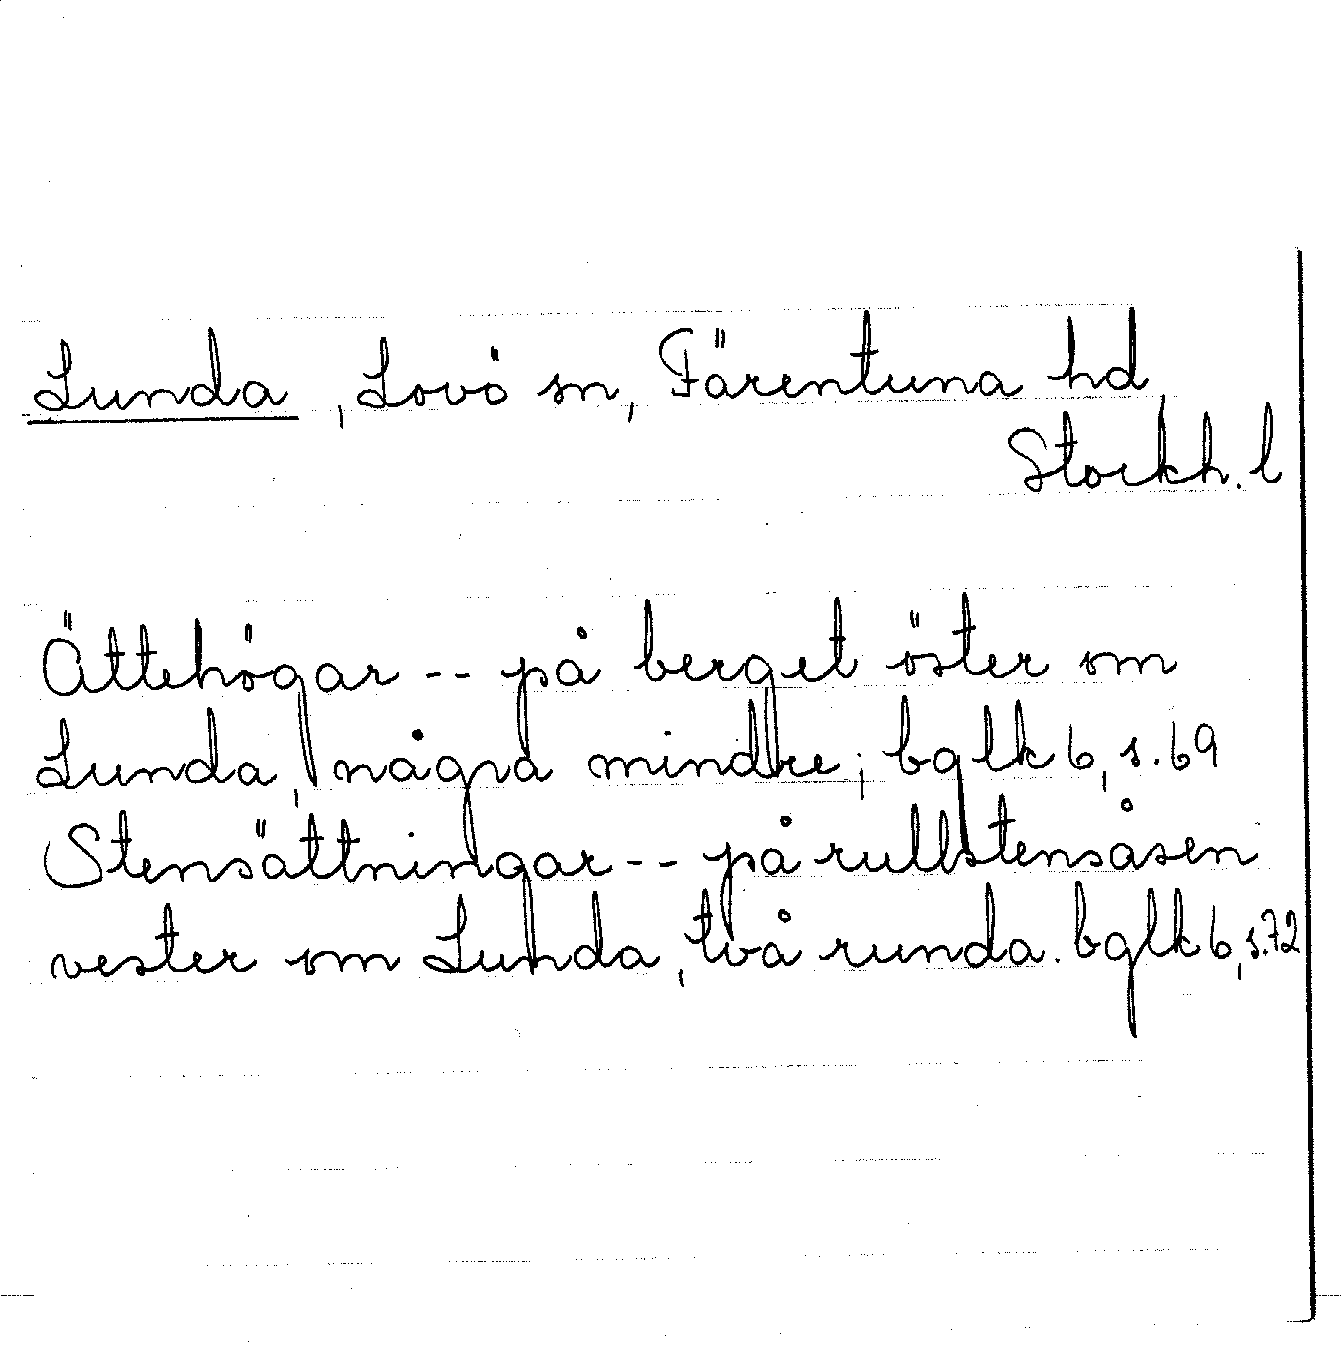 Lunda, Lovö sn, Färentuna hd
Stockh. l
Ättehögar -- på berget öster om
Lunda, några mindre; bglk 6, s. 69
Stensättningar -- på rullstensåsen
vester om Lunda, två runda. bglk 6, s. 72